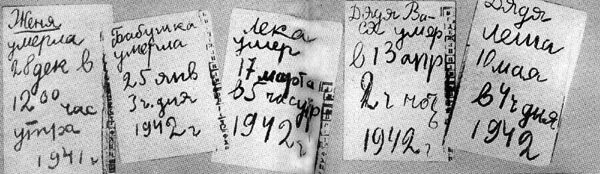 Женя
умерла
28 дек в
12 00 час
утра
1941 г
Бабушка
умерла
25 янв
3 ч. дня
1942 г
Лека
умер
17 марта
в 5 час утр
1942 г
Дядя Ва-
ся умер
в 13 апр
2 ч ноч
1942 г
Дядя
Леша
10 мая
в 4 ч дня
1942